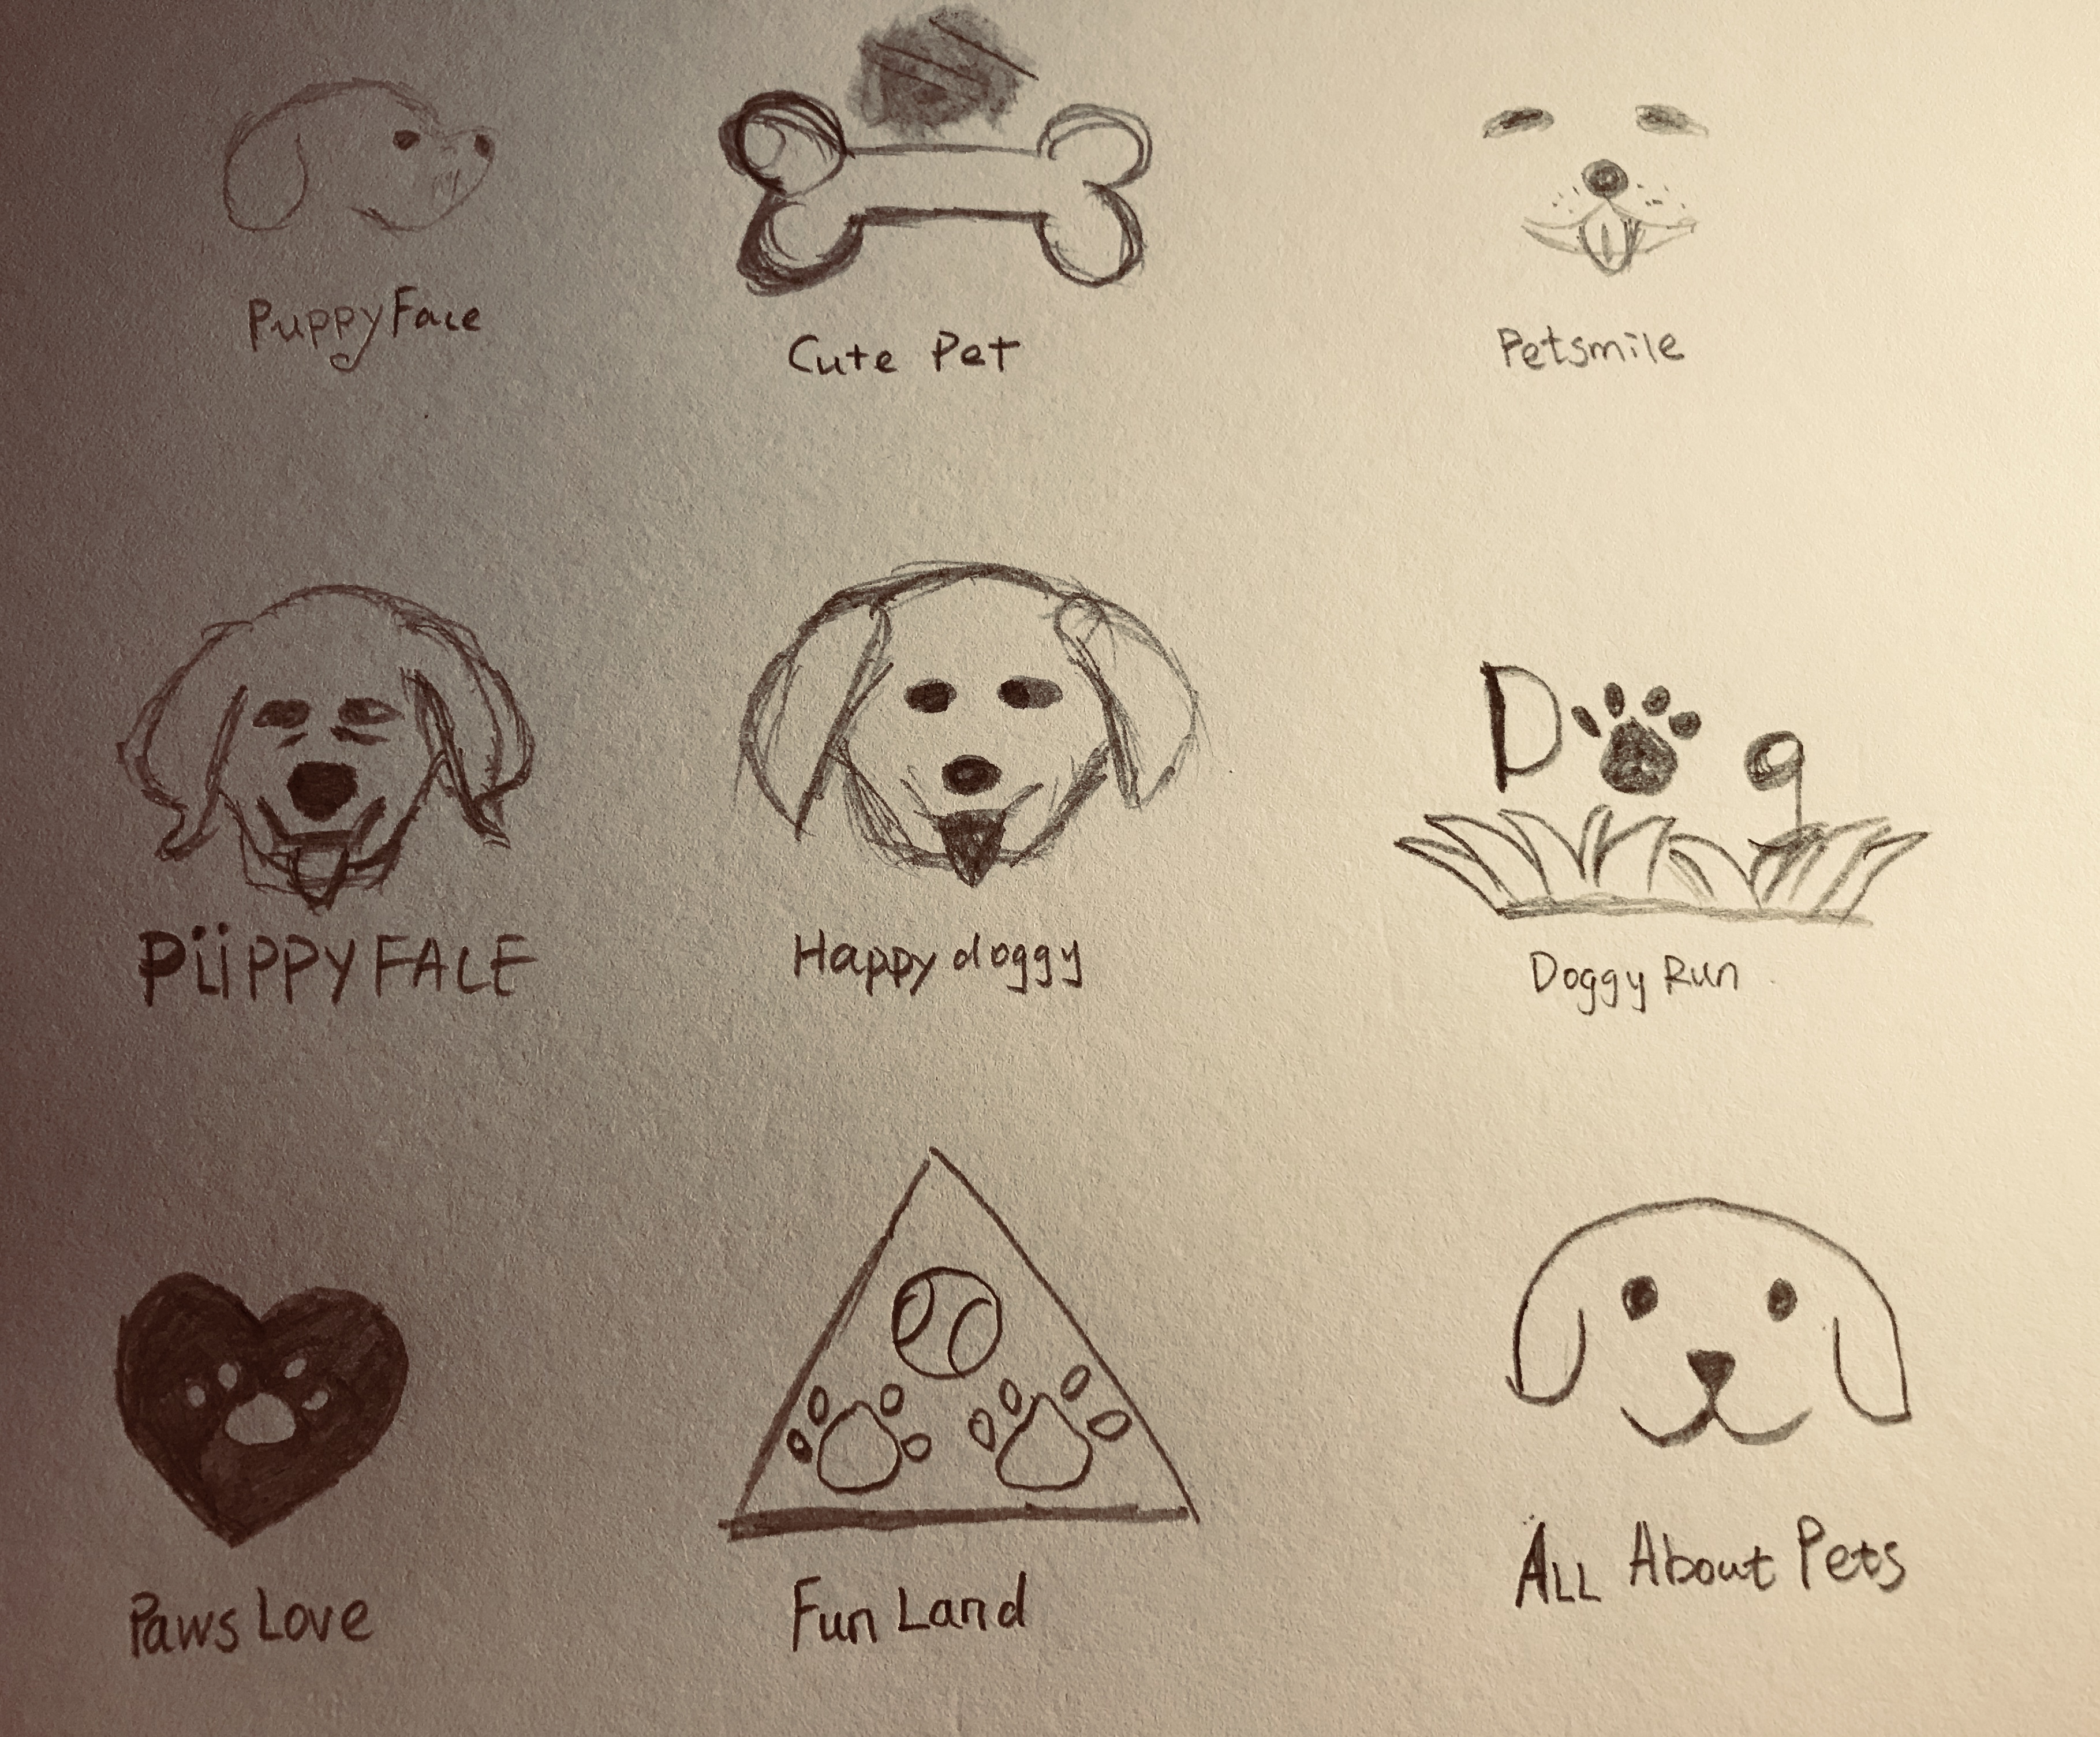 Puppy Face
Cute Pet
Petsmile
PÜPPY FACE
Happy doggy
D g
Doggy Run
Paws Love
Fun Land
ALL About Pets